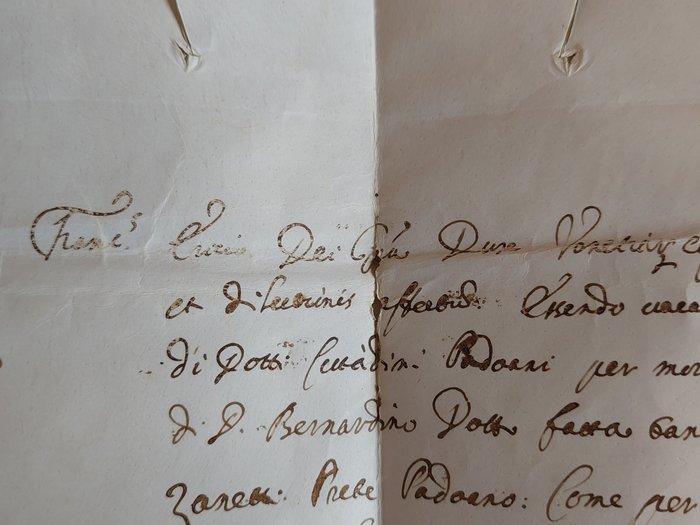 Franc.s Ericio Dei Gra Dux Venetiar
et dilectionis affectū. Essendo vaca
di Dotti Cittadini Padoani per mor
di D. Bernardino Dotto fatta
Zanetti Prete Padoano: Come per